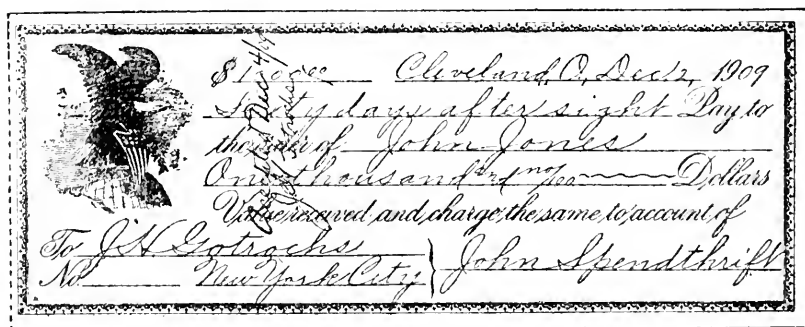 $1000 00 Cleveland, O, Dec 2, 1909
Sixty days after sight Pay to
the order of John Jones
One thousand and no/100 Dollars
Value received and charge the same to account of
To J H Gotrochs
No New York City John Spendthrift
Accepted Dec 4/09